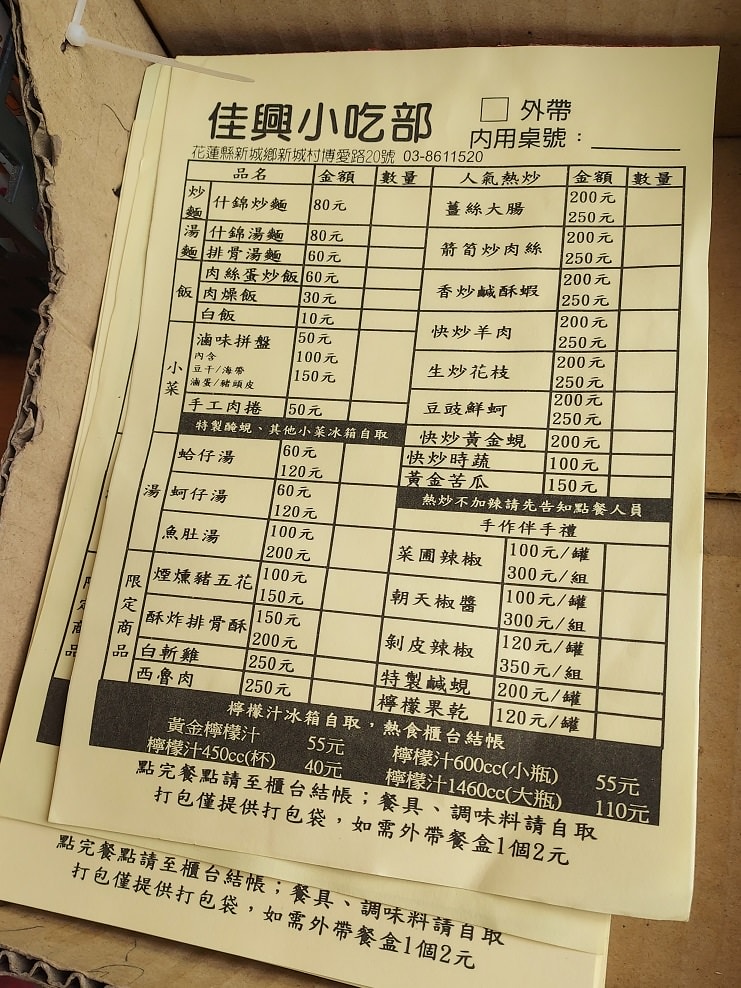 佳興小吃部
□ 外帶
內用桌號：
花蓮縣新城鄉新城村博愛路20號 03-8611520
品名 金額 數量
炒麵
什錦炒麵 80元
湯麵
什錦湯麵 80元
排骨湯麵 60元
飯
肉絲蛋炒飯 60元
肉燥飯 30元
白飯 10元
小菜
滷味拼盤 50元
內含 100元
豆干/海帶 150元
滷蛋/豬頭皮
手工肉捲 50元
特製醃蜆、其他小菜冰箱自取
湯
蛤仔湯 60元
120元
蚵仔湯 60元
120元
魚肚湯 100元
200元
限定商品
煙燻豬五花 100元
150元
酥炸排骨酥 150元
200元
白斬雞 250元
西魯肉 250元
人氣熱炒 金額 數量
薑絲大腸 200元
250元
箭筍炒肉絲 200元
250元
香炒鹹酥蝦 200元
250元
快炒羊肉 200元
250元
生炒花枝 200元
250元
豆豉鮮蚵 200元
250元
快炒黃金蜆 200元
快炒時蔬 100元
黃金苦瓜 150元
熱炒不加辣請先告知點餐人員
手作伴手禮
菜圃辣椒 100元/罐
300元/組
朝天椒醬 100元/罐
300元/組
剝皮辣椒 120元/罐
350元/組
特製鹹蜆 200元/罐
檸檬果乾 120元/罐
檸檬汁冰箱自取，熱食櫃台結帳
黃金檸檬汁 55元
檸檬汁450cc(杯) 40元
檸檬汁600cc(小瓶) 55元
檸檬汁1460cc(大瓶) 110元
點完餐點請至櫃台結帳；餐具、調味料請自取
打包僅提供打包袋，如需外帶餐盒1個2元
點完餐點請至櫃台結帳；餐具、調味料請自取
打包僅提供打包袋，如需外帶餐盒1個2元